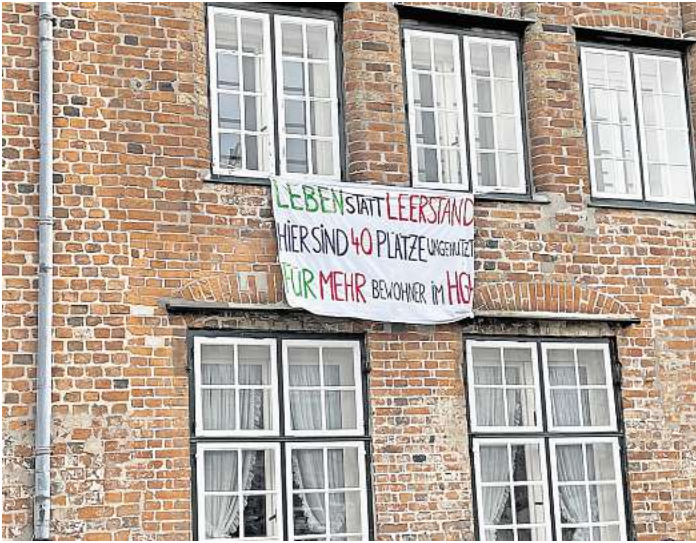 LEBEN STATT LEERSTAND
HIER SIND 40 PLÄTZE UNGENUTZT
FÜR MEHR BEWOHNER IM